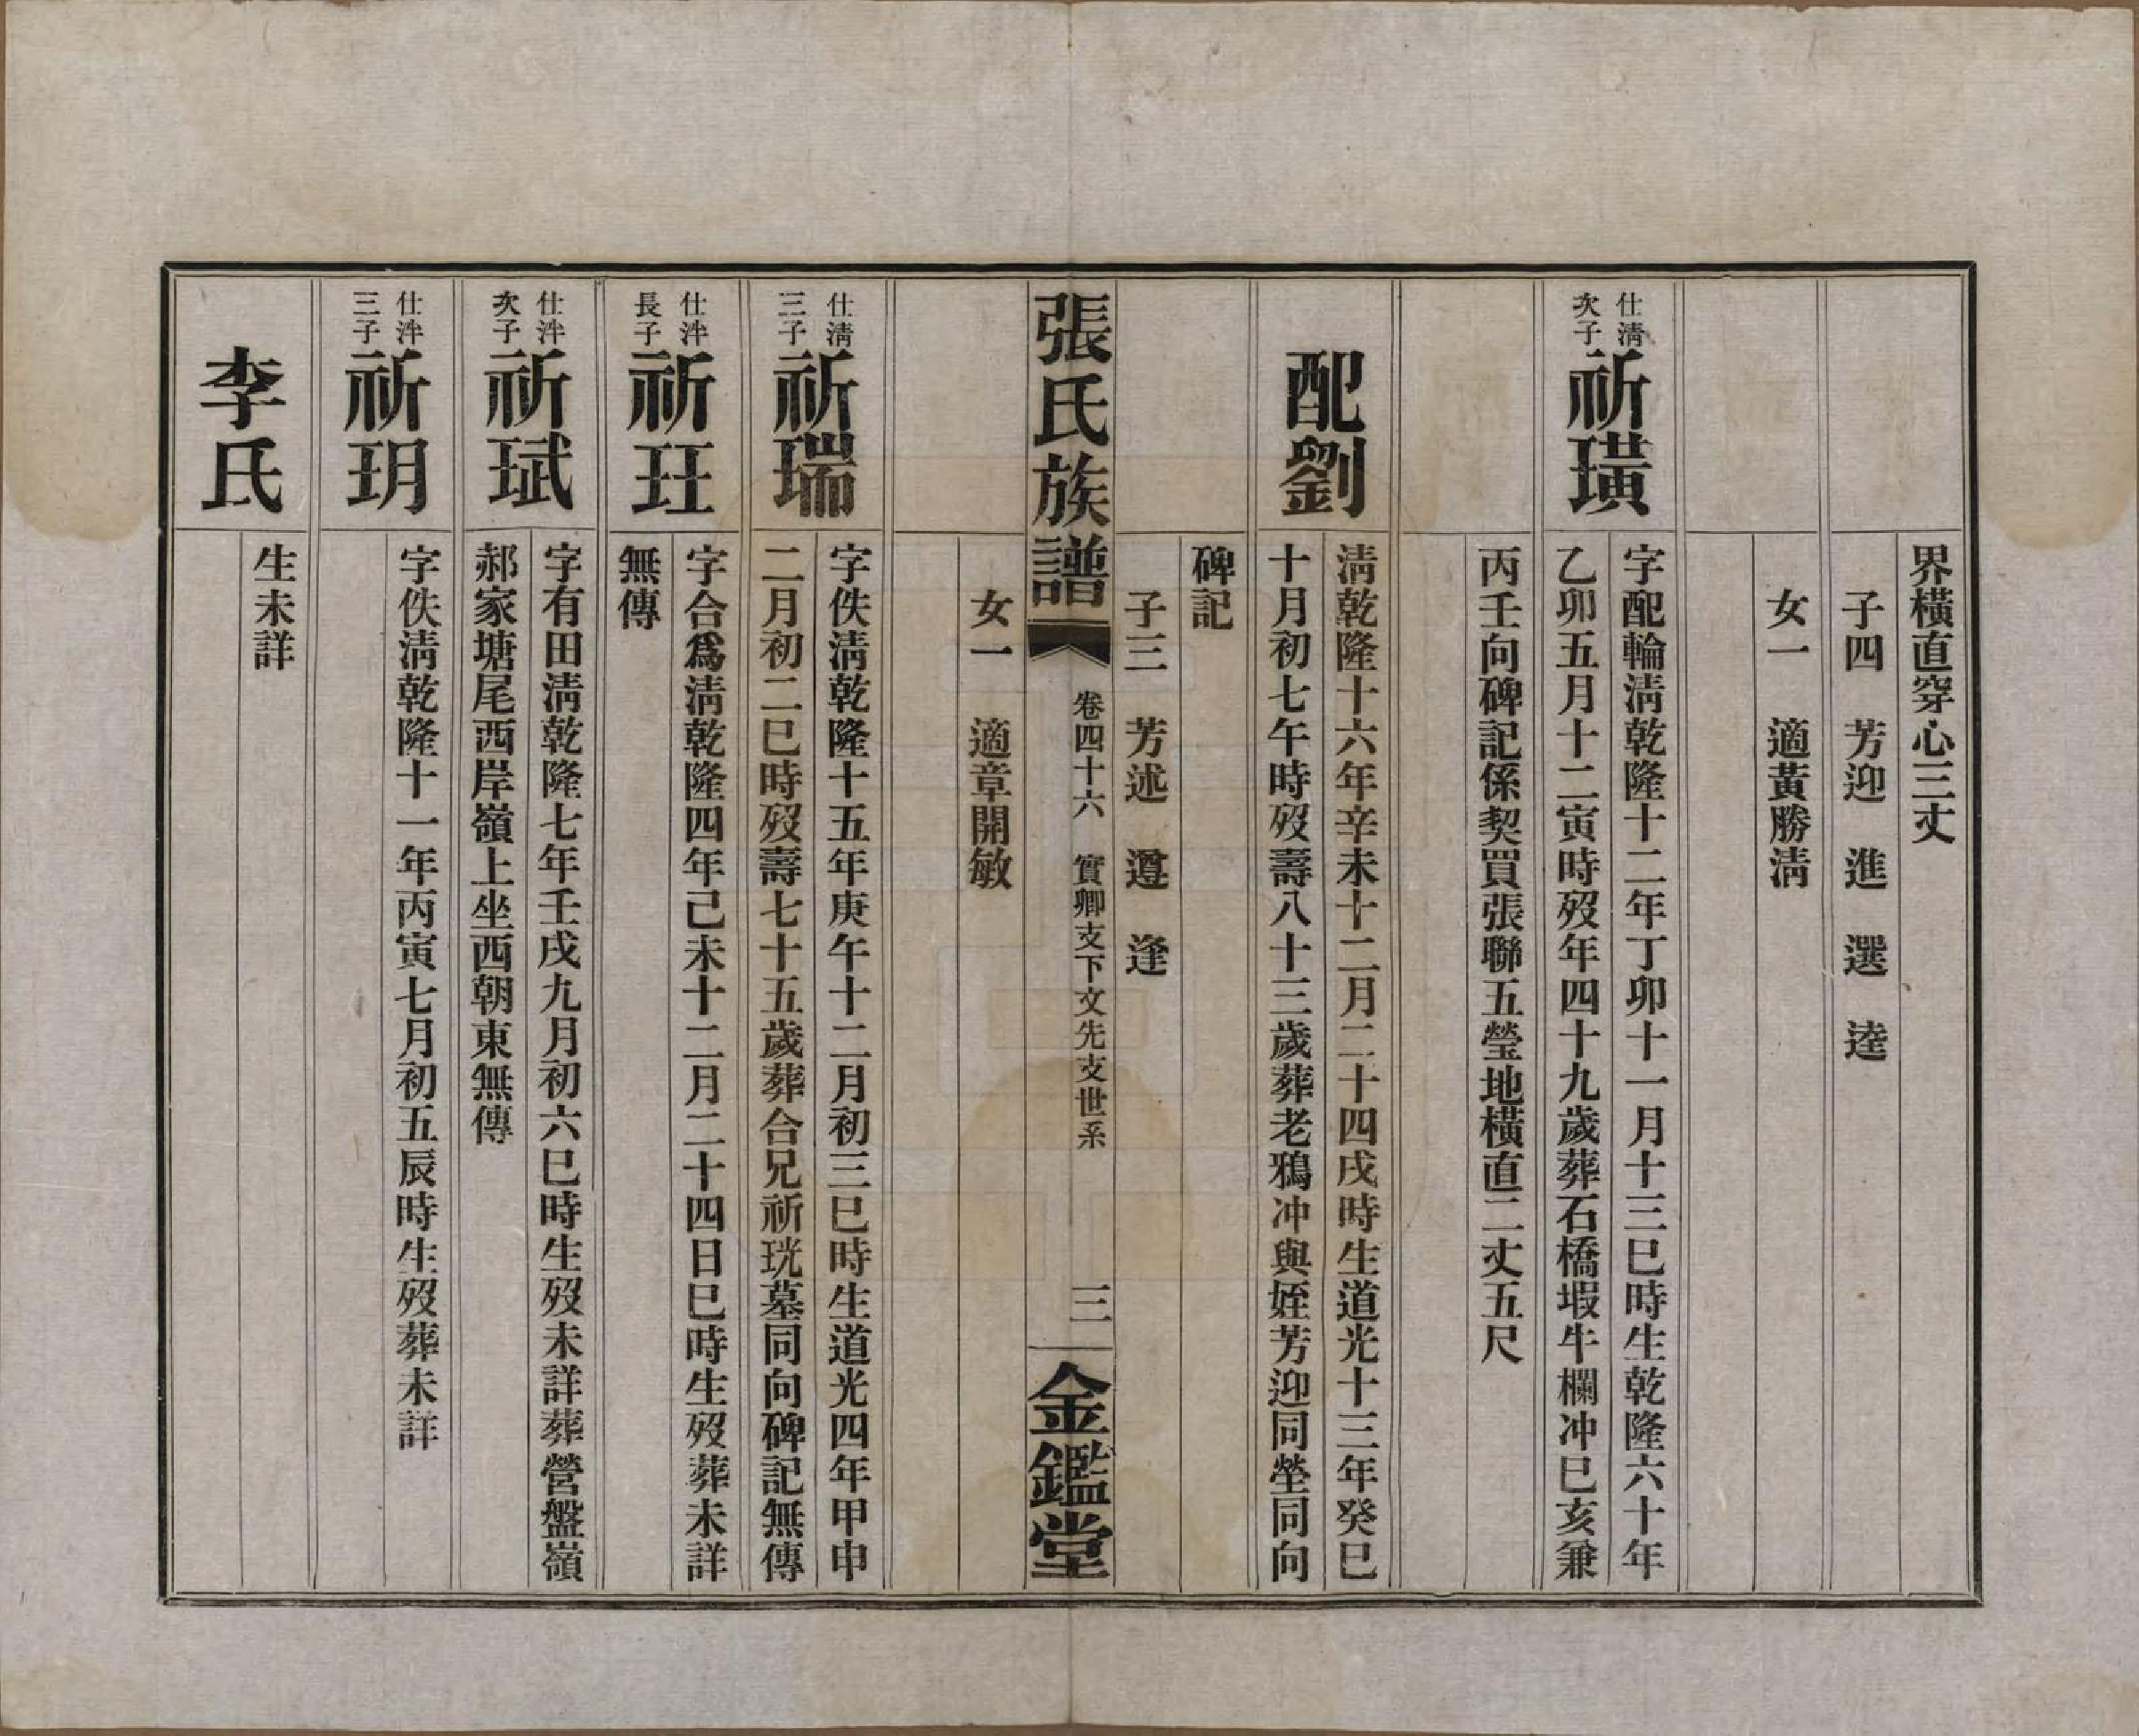 界橫直穿心三丈
子四　芳迎　進　選　逵
女一　適黃勝淸
仕淸
次子
祈璜
字配輪淸乾隆十二年丁卯十一月十三巳時生乾隆六十年
乙卯五月十二寅時歿年四十九歲葬石橋塅牛欄冲巳亥兼
丙壬向碑記係契買張聯五瑩地橫直二丈五尺
配劉
淸乾隆十六年辛未十二月二十四戌時生道光十三年癸巳
十月初七午時歿壽八十三歲葬老鴉冲與姪芳迎同塋同向
碑記
子三　芳述　遵　逢
張氏族譜
卷四十六　實卿支下文先支世系
三
金鑑堂
女一　適章開敏
仕淸
三子
祈瑞
字佚淸乾隆十五年庚午十二月初三巳時生道光四年甲申
二月初二巳時歿壽七十五歲葬合兄祈珖墓同向碑記無傳
仕泮
長子
祈玨
字合爲淸乾隆四年己未十二月二十四日巳時生歿葬未詳
無傳
仕泮
次子
祈珷
字有田淸乾隆七年壬戌九月初六巳時生歿未詳葬營盤嶺
郝家塘尾西岸嶺上坐西朝東無傳
仕泮
三子
祈玥
字佚淸乾隆十一年丙寅七月初五辰時生歿葬未詳
李氏
生未詳